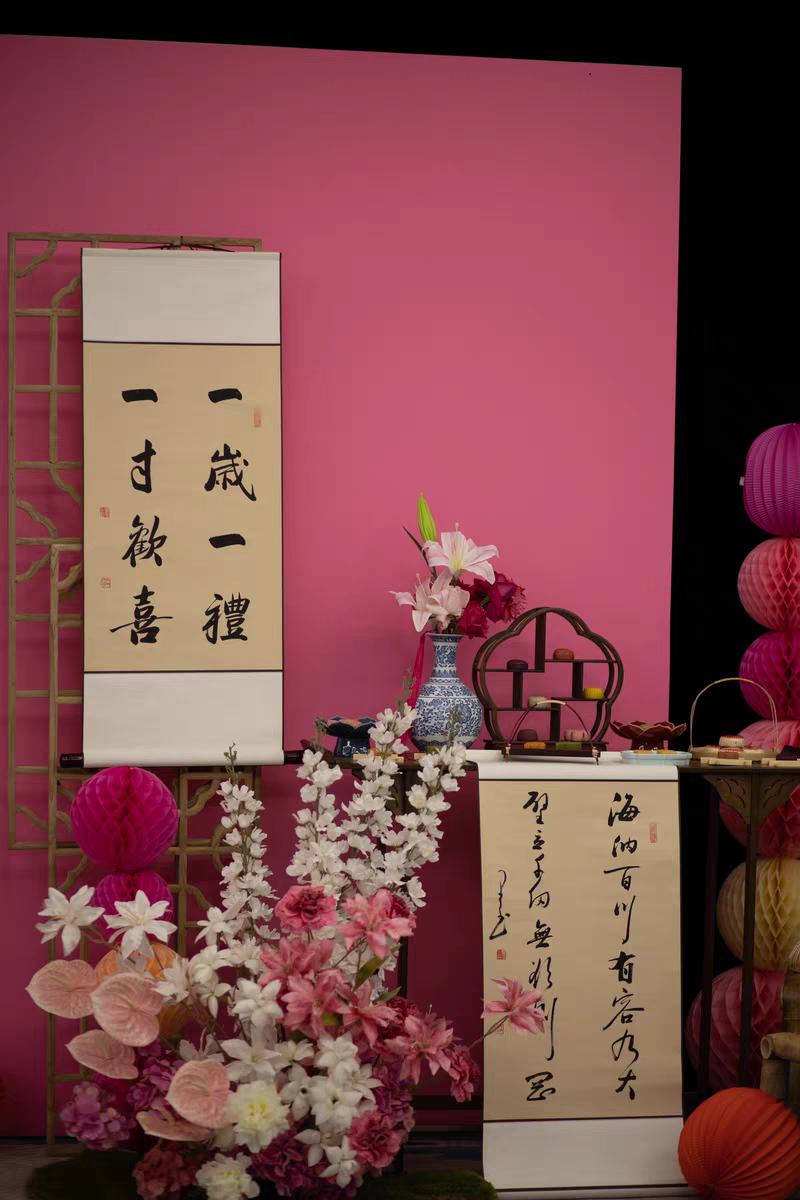 一歲一禮
一寸歡喜
海納百川有容乃大
壁立千仞無欲則剛